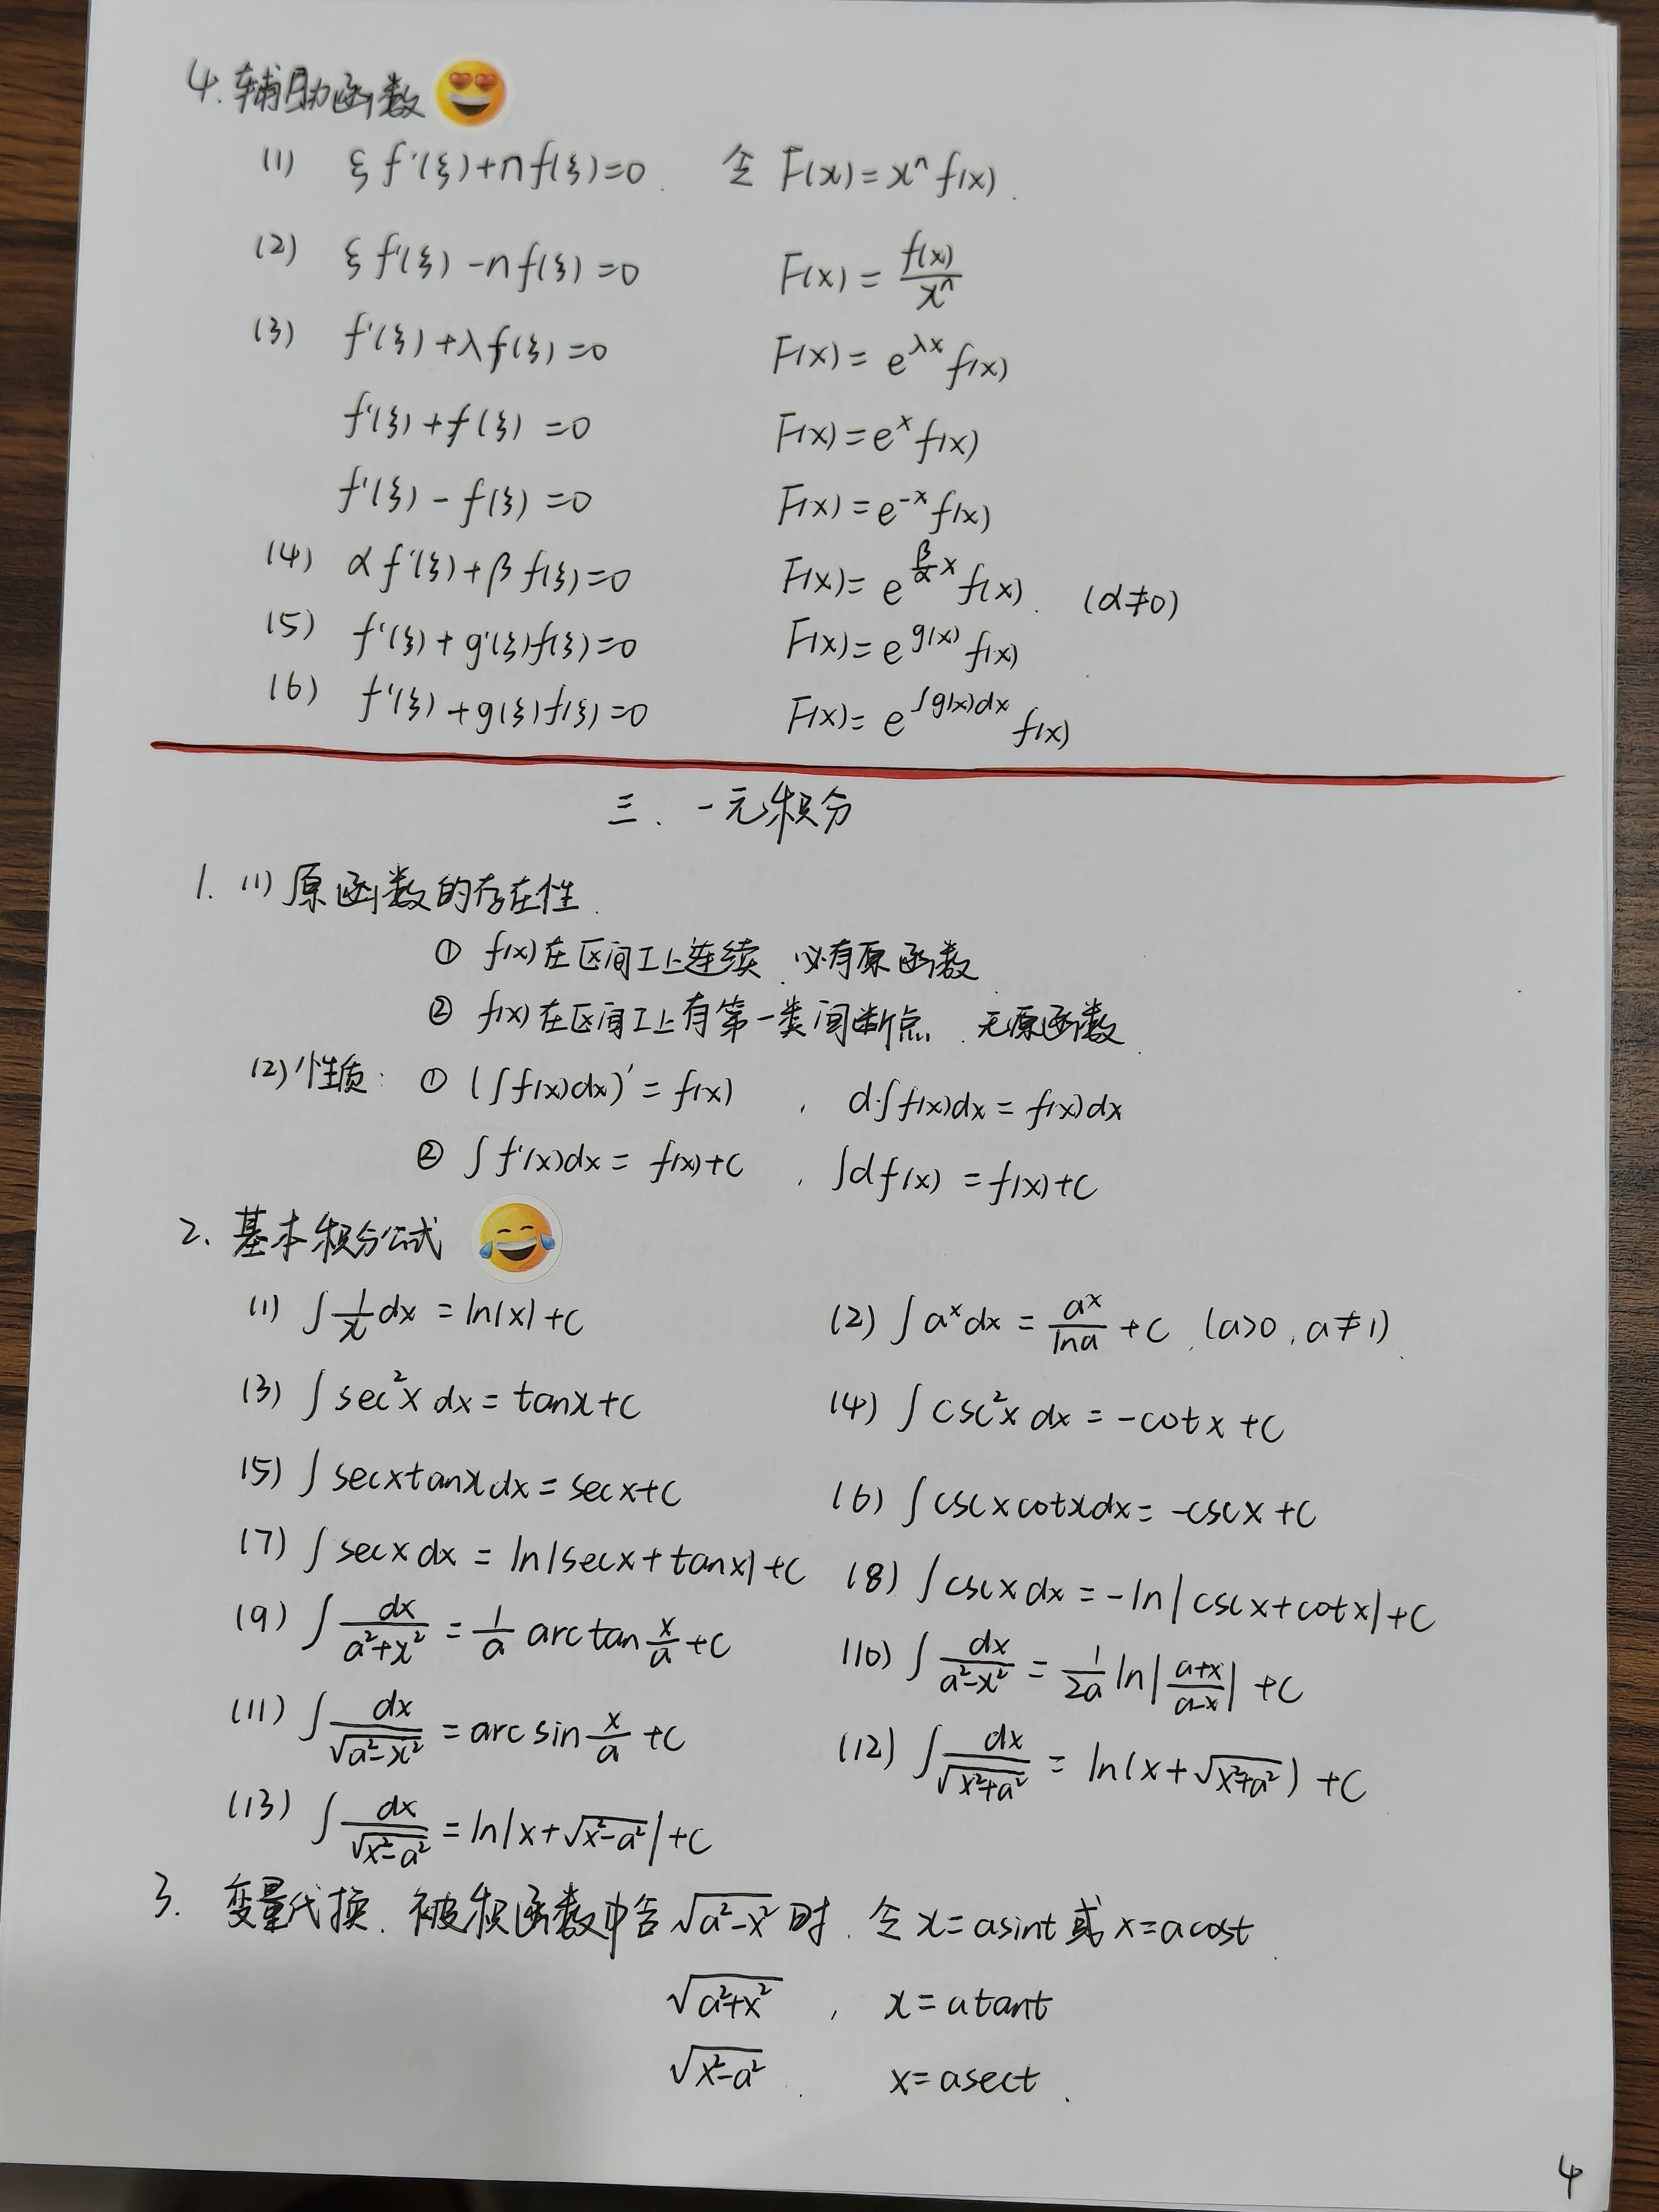 4. 辅助函数
(1) ξf'(ξ)+nf(ξ)=0. 令 F(x)=xⁿf(x).
(2) ξf'(ξ)-nf(ξ)=0 F(x)=f(x)/xⁿ
(3) f'(ξ)+λf(ξ)=0 F(x)=e^{λx}f(x)
f'(ξ)+f(ξ)=0 F(x)=e^x f(x)
f'(ξ)-f(ξ)=0 F(x)=e^{-x}f(x)
(4) αf'(ξ)+βf(ξ)=0 F(x)=e^{(β/α)x}f(x). (α≠0)
(5) f'(ξ)+g'(ξ)f(ξ)=0 F(x)=e^{g(x)}f(x)
(6) f'(ξ)+g(ξ)f(ξ)=0 F(x)=e^{∫g(x)dx}f(x)
三、一元积分
1. (1) 原函数的存在性.
① f(x)在区间I上连续, 必有原函数
② f(x)在区间I上有第一类间断点, 无原函数.
(2) 性质: ① (∫f(x)dx)'=f(x) , d∫f(x)dx=f(x)dx
② ∫f'(x)dx=f(x)+C , ∫df(x)=f(x)+C
2. 基本积分公式
(1) ∫1/x dx=ln|x|+C (2) ∫a^x dx=a^x/lna+C, (a>0, a≠1).
(3) ∫sec²x dx=tanx+C (4) ∫csc²x dx=-cotx+C
(5) ∫secxtanxdx=secx+C (6) ∫cscxcotxdx=-cscx+C
(7) ∫secxdx=ln|secx+tanx|+C (8) ∫cscxdx=-ln|cscx+cotx|+C
(9) ∫dx/(a²+x²)=1/a arctan x/a+C (10) ∫dx/(a²-x²)=1/2a ln|(a+x)/(a-x)|+C
(11) ∫dx/√(a²-x²)=arcsin x/a+C (12) ∫dx/√(x²+a²)=ln(x+√(x²+a²))+C
(13) ∫dx/√(x²-a²)=ln|x+√(x²-a²)|+C
3. 变量代换. 被积函数中含√(a²-x²)时, 令x=asint或x=acost.
√(a²+x²) , x=atant
√(x²-a²) , x=asect.
4